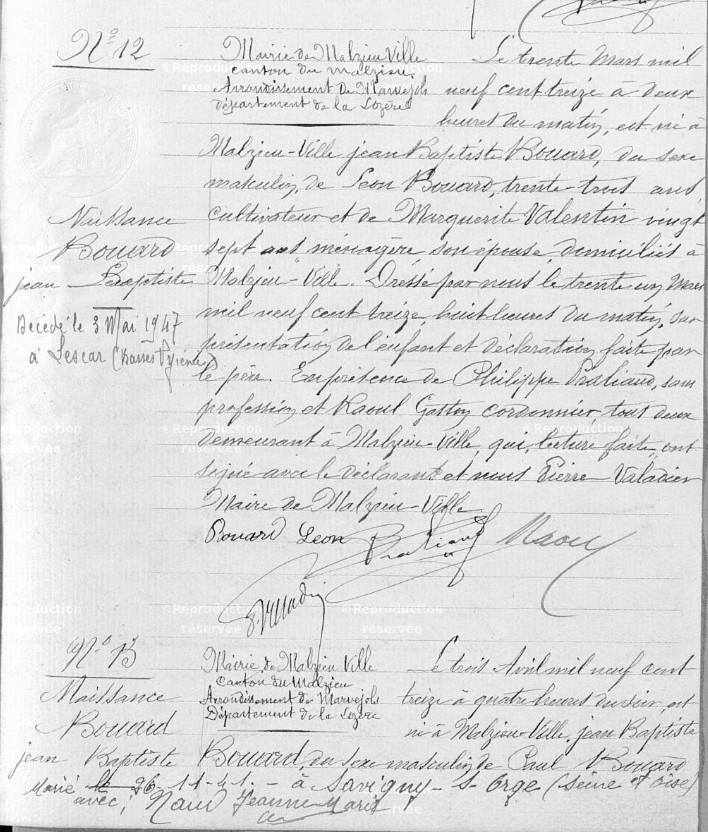 N° 12
Mairie de Malzieu Ville
canton du malzieu
Arrondissement de Marvejols
département de la Lozère
Le trente Mars mil
neuf cent treize à deux
heures du matin, est né à
Malzieu-Ville jean Baptiste Bouard, du sexe
masculin, de Leon Bouard, trente-trois ans
cultivateur et de Marguerite Valentin vingt
sept ans ménagère son épouse, domiciliés à
Malzieu-Ville. Dressé par nous le trente un Mars
mil neuf cent treize, huit heures du matin, sur
présentation de l'enfant et déclaration faite par
le père. En présence de Philippe Prulliaud, sans
profession, et Raoul Gaston cordonnier tout deux
demeurant à Malzieu-Ville, qui, lecture faite, ont
signé avec le déclarant et nous Pierre Valadier
Maire de Malzieu-Ville
Naissance
Bouard
jean Baptiste
Décédé le 3 Mai 1947
à Lescar (Basses Pyrénées)
Bouard Leon
Raoul
N° 13
Naissance
Bouard
jean Baptiste
Mairie de Malzieu Ville
Canton du Malzieu
Arrondissement de Marvejols
Département de la Lozère
Le trois Avril mil neuf cent
treize à quatre heures du soir, est
né à Malzieu Ville, jean Baptiste
Bouard, du sexe masculin, de Paul Bouard
Marié le 26.11.41. - à Savigny - s - Orge (Seine et Oise)
avec, Naud Jeanne Marie
© Reproduction réservée